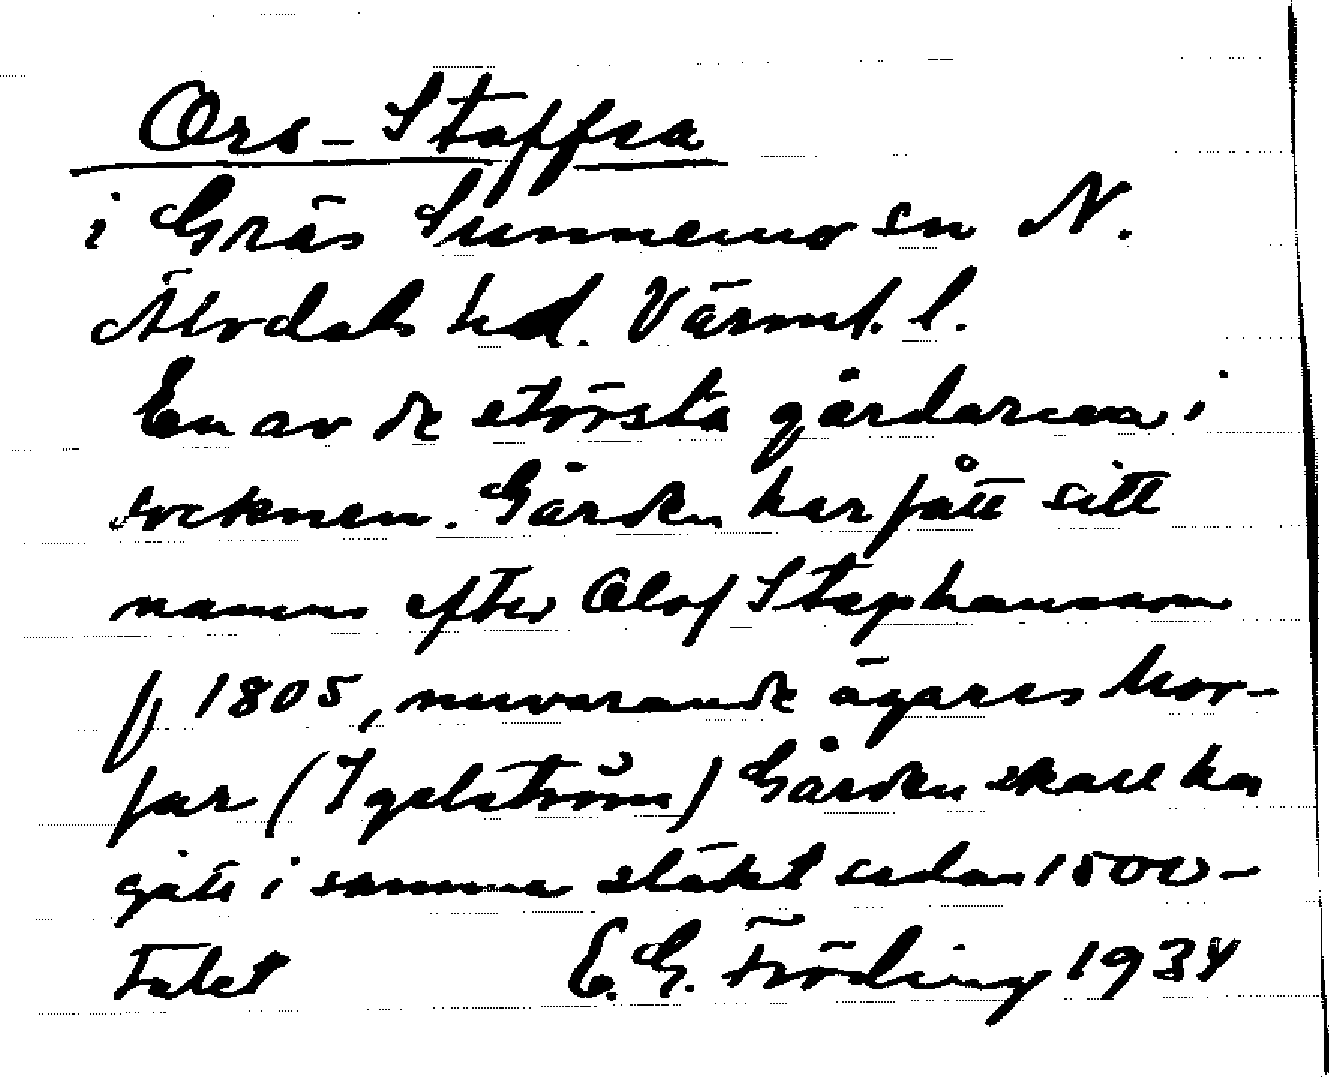 Ors-Staffra
i Grås Sunnemo sn N.
Älvdals hd. Värml. l.
En av de största gårdarna i
socknen. Gården har fått sitt
namn efter Olof Staphansson
f 1805, nuvarande ägares mor-
far (Igelström) Gården skall ha
gått i samma släkt sedan 1500-
talet E. G. Fröding 1934